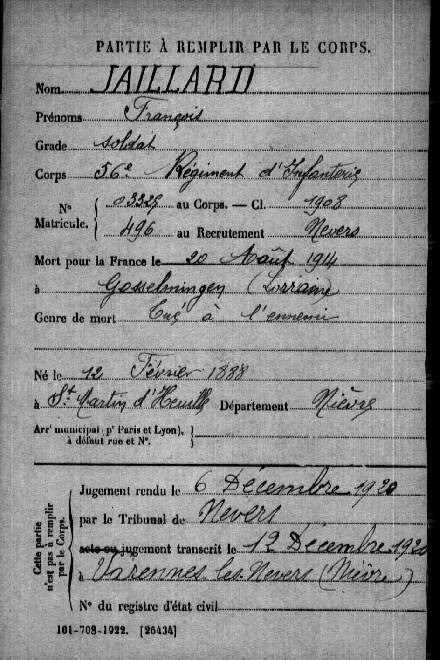 PARTIE À REMPLIR PAR LE CORPS.
Nom JAILLARD
Prénoms François
Grade soldat
Corps 56e Régiment d'Infanterie
Nº Matricule. { 03325 au Corps. — Cl. 1908
496 au Recrutement Nevers
Mort pour la France le 20 Août 1914
à Gosselmingen (Lorraine)
Genre de mort Tué à l'ennemi
Né le 12 Février 1888
à St Martin d'Heuille Département Nièvre
Arrt municipal (pr Paris et Lyon), à défaut rue et Nº. }
Cette partie n'est pas à remplir par le Corps.
Jugement rendu le 6 Décembre 1920
par le Tribunal de Nevers
acte ou jugement transcrit le 12 Décembre 1920
à Varennes les Nevers (Nièvre)
Nº du registre d'état civil
101-708-1922. [26434]